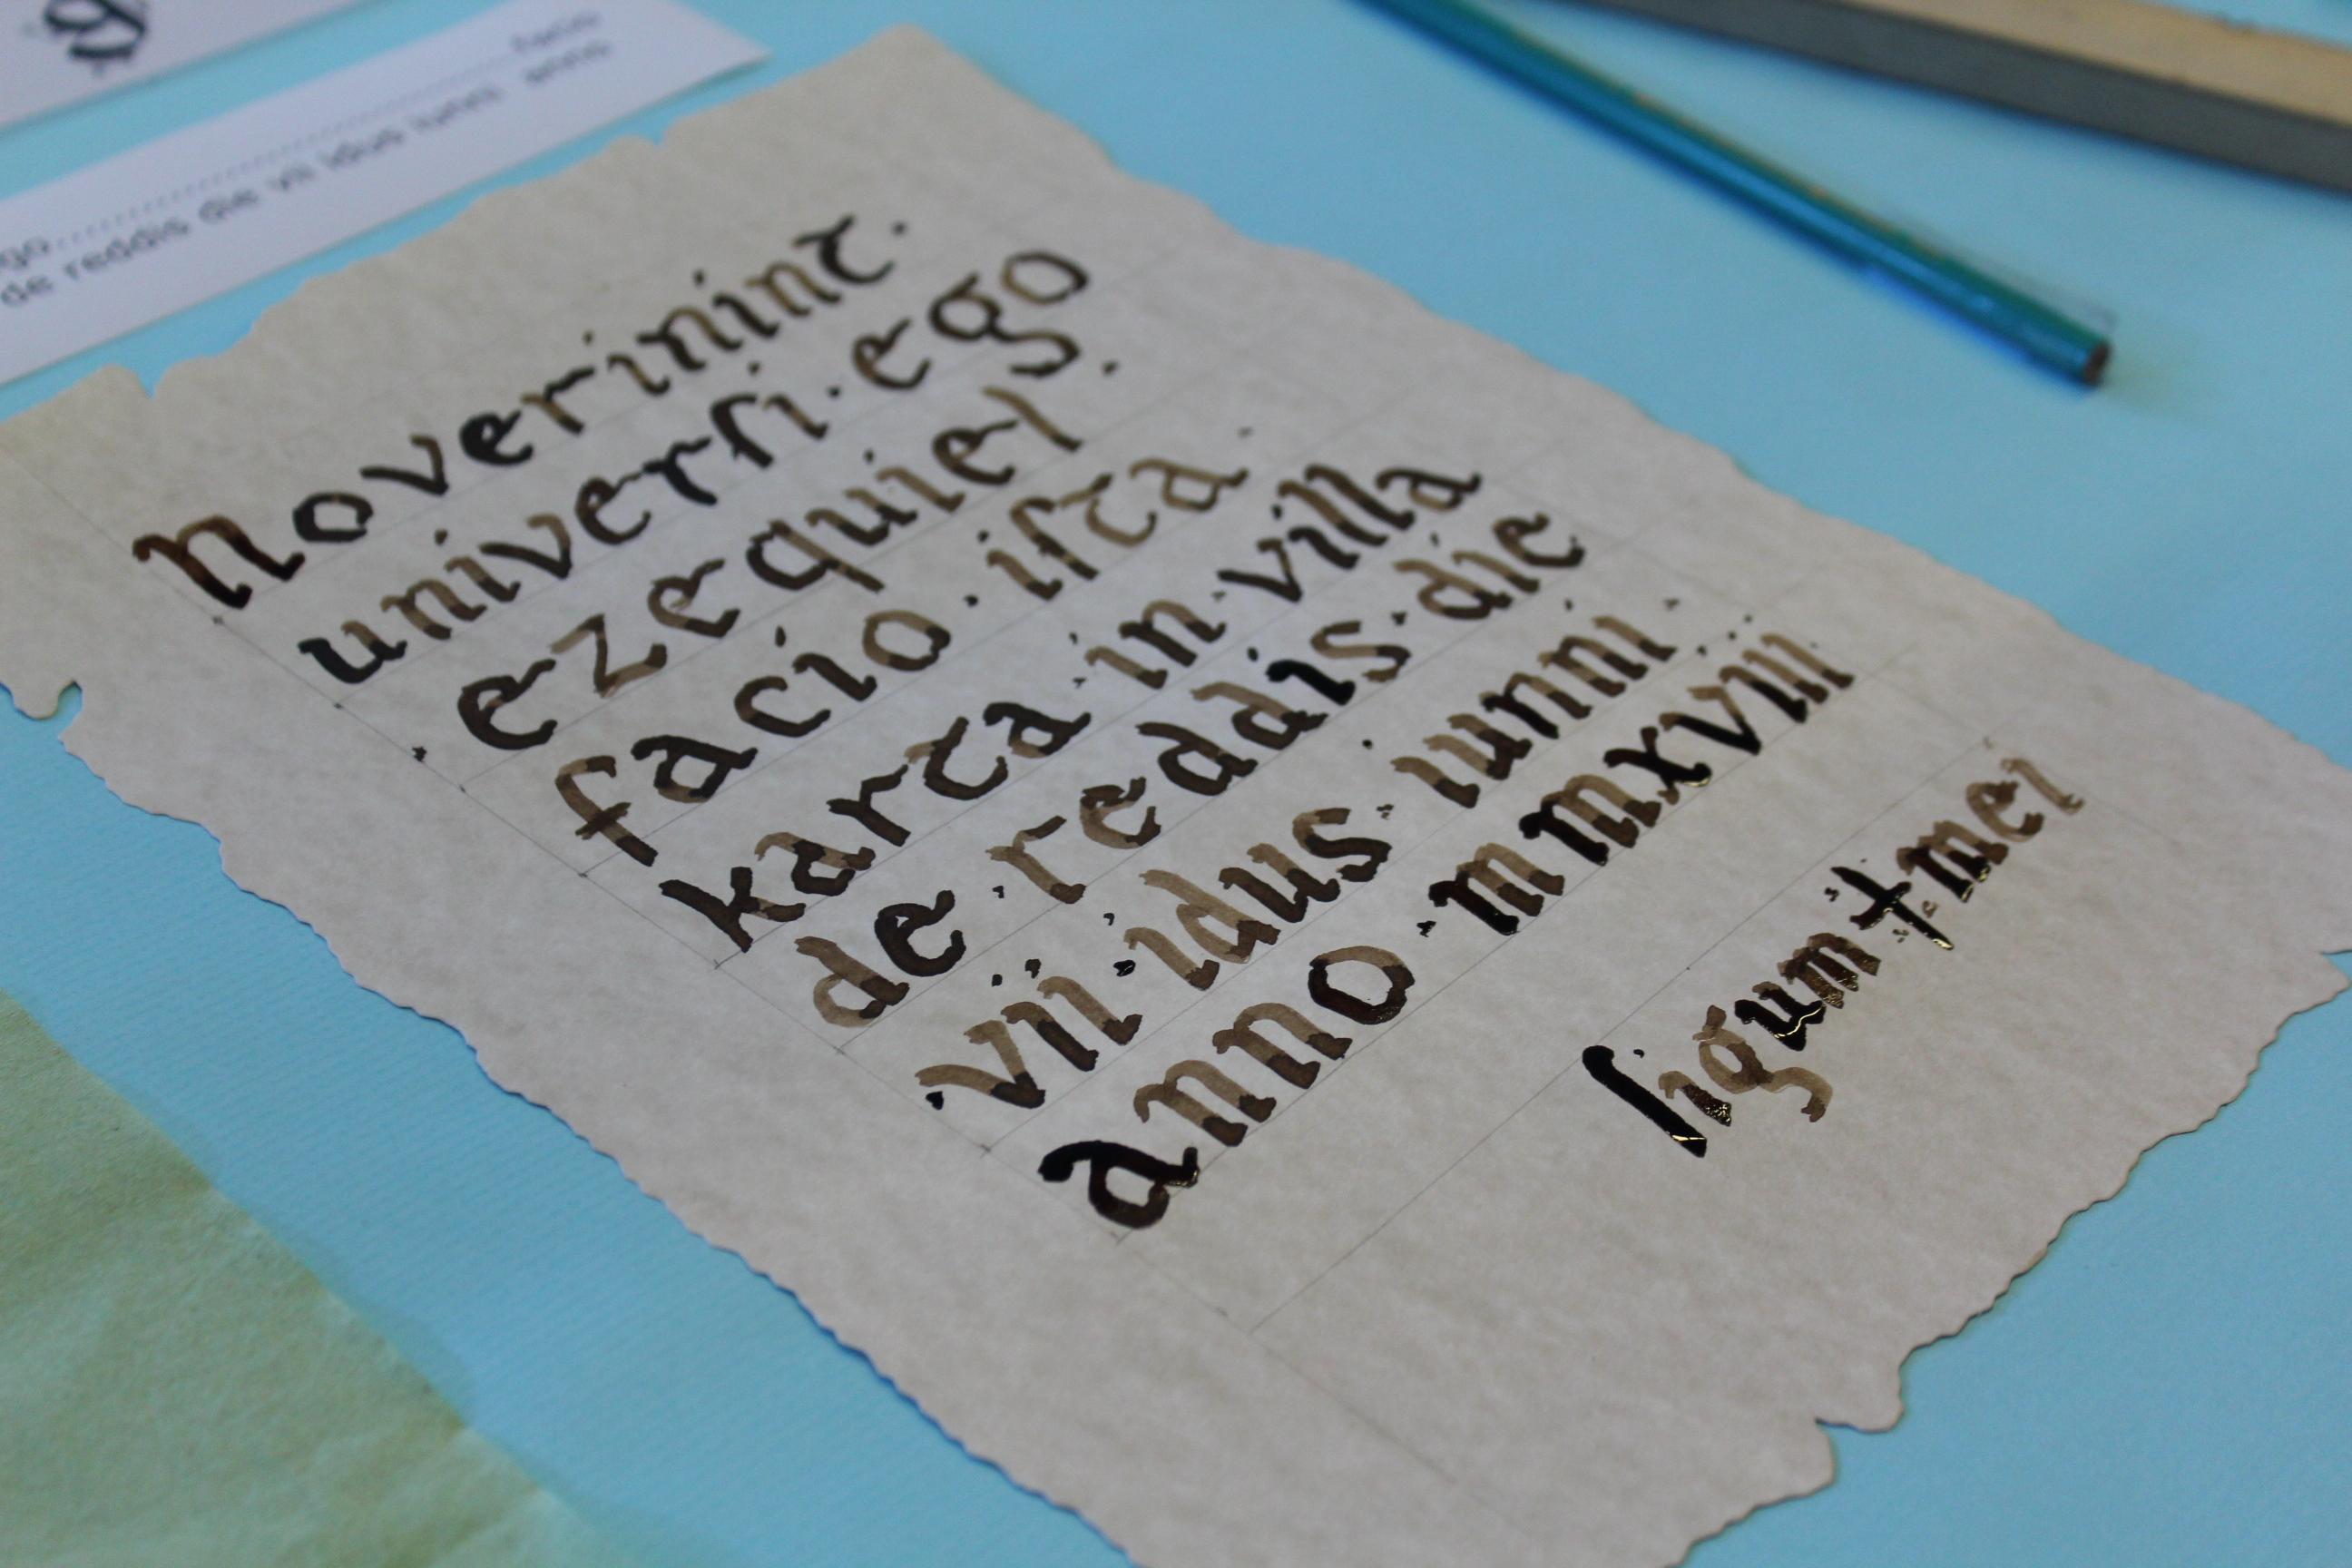 go........................facio
de reddis die vii idus iunii anno
noverinint.
univerſi · ego
· ezequiel ·
facio · iſta ·
karta · in · villa
de · reddis · die
· vii · idus · iunni ·
anno · mmxviii
ſigum + mei